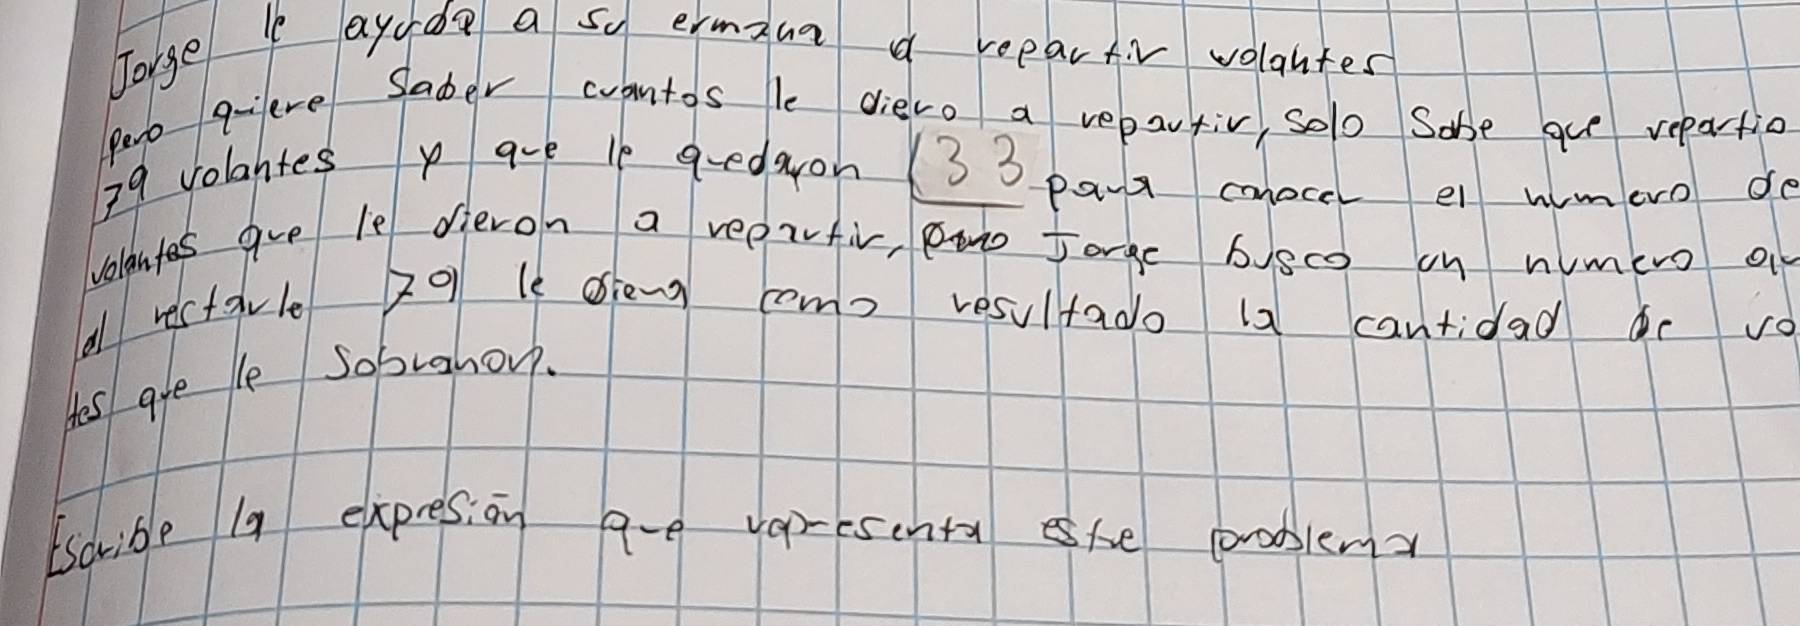 Jorge le ayuda a su ermana a repartir volantes
pero quiere Saber cuantos le diero a repartir, solo Sabe que repartio
79 volantes y que le quedaron 33 para conocer el numero de
volantes que le dieron a repartir, Jorge busco un numero
al restarle 79 le diera como resultado la cantidad de vo
tes que le Sobraron.
Escribe la expresión que representa este problema